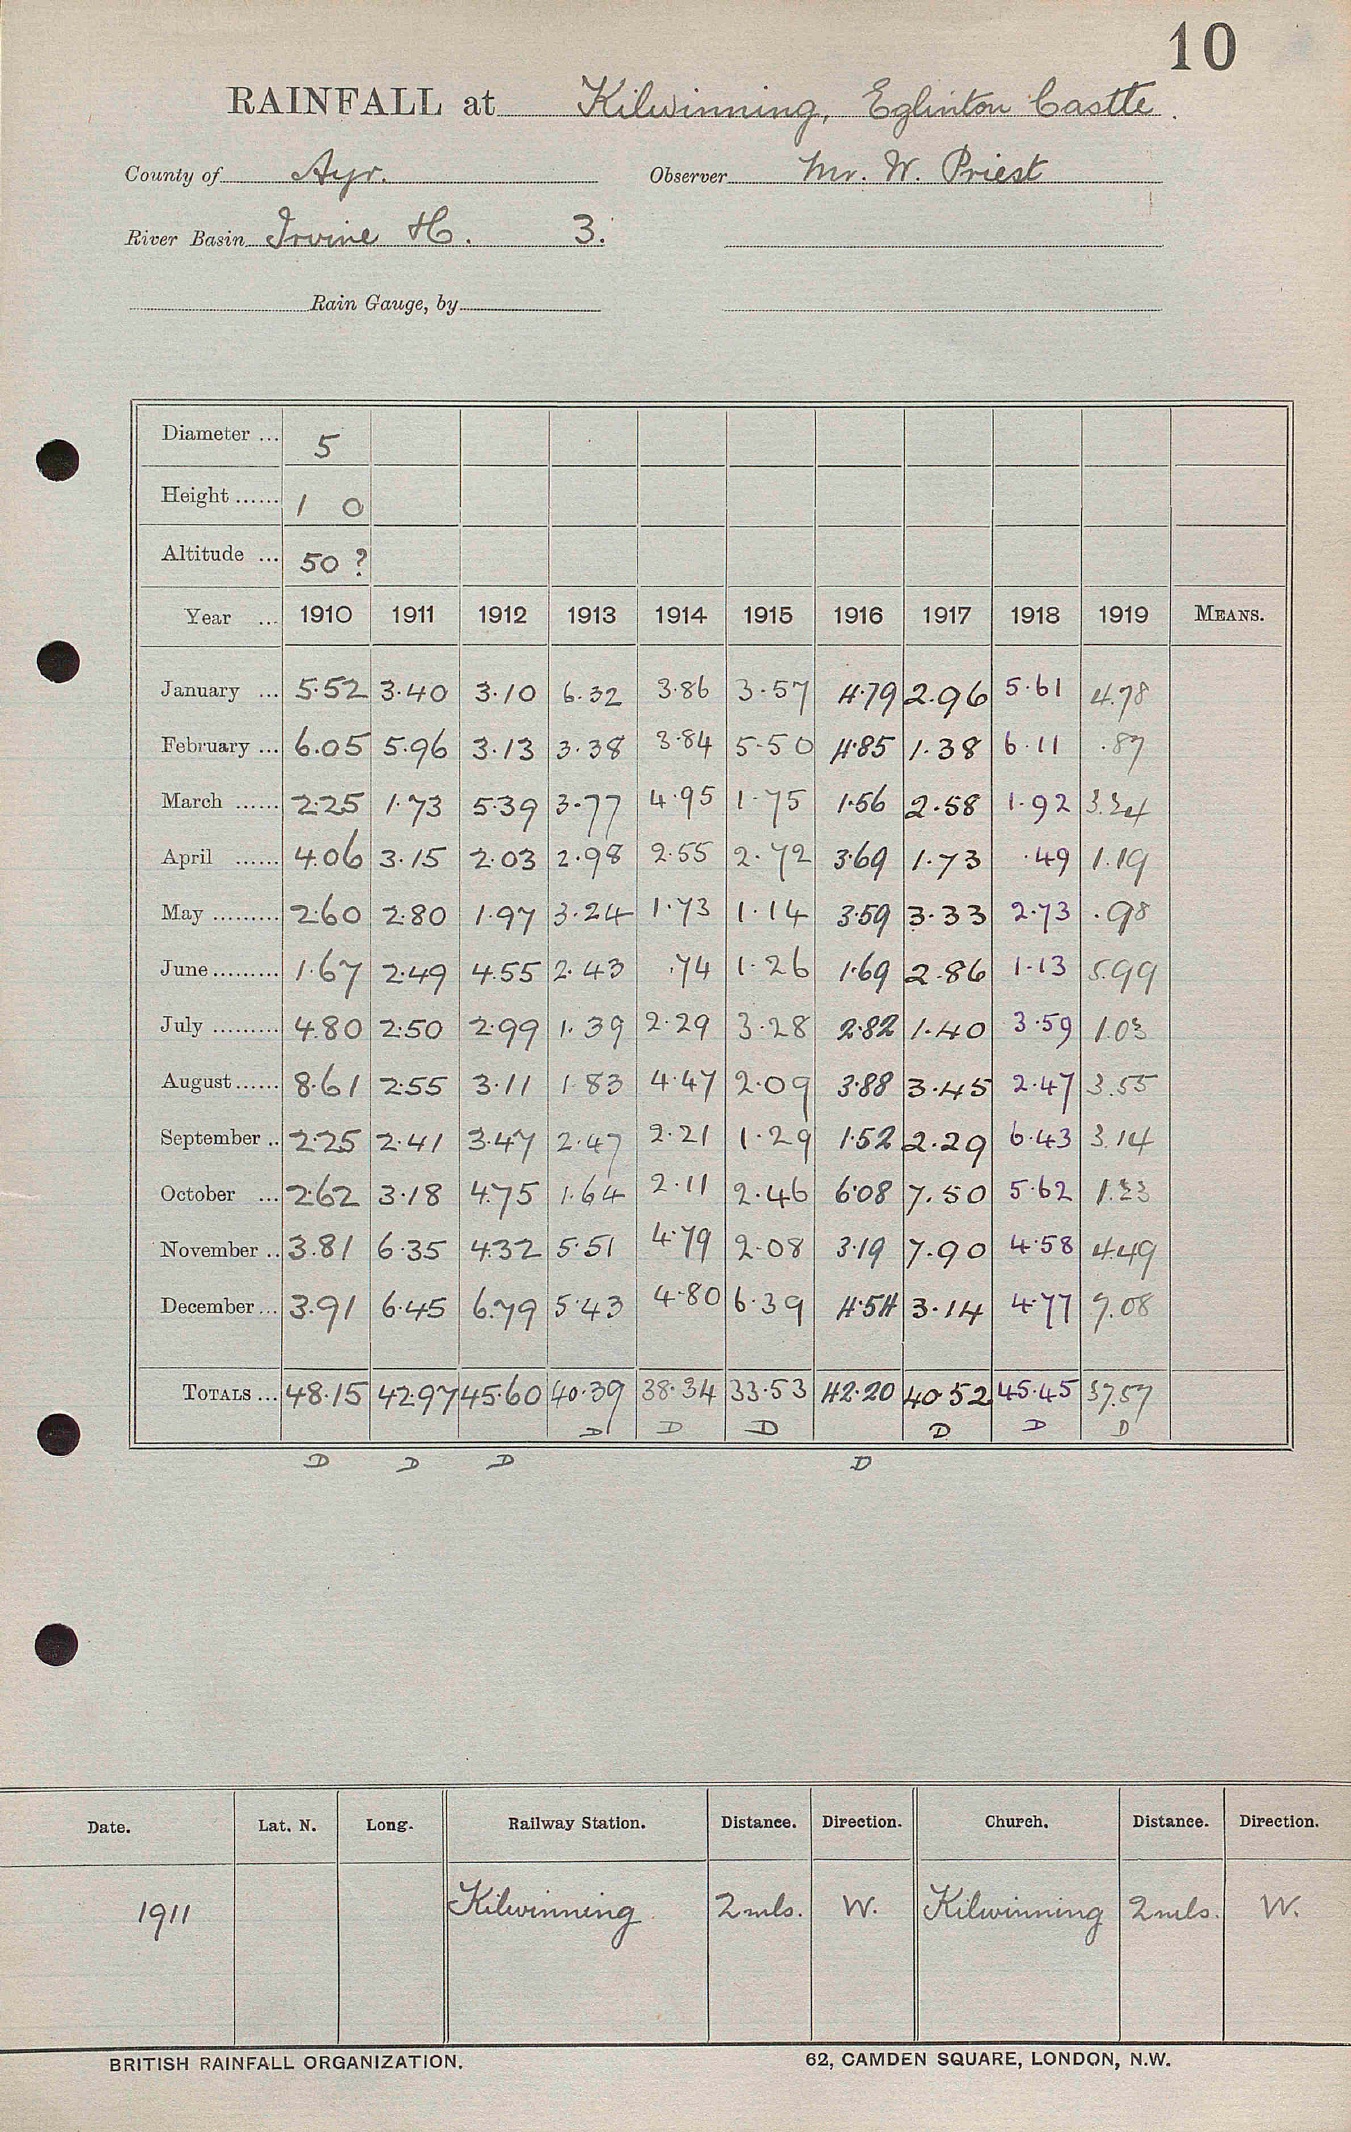 10
RAINFALL at Kilwinning, Eglinton Castle.
County of Ayr. Observer Mr. W. Priest
River Basin Irvine H. 3.
Rain Gauge, by
Diameter ... 5
Height ...... 1 0
Altitude ... 50 ?
Year ... 1910 1911 1912 1913 1914 1915 1916 1917 1918 1919 MEANS.
January ... 5.52 3.40 3.10 6.32 3.86 3.57 4.79 2.96 5.61 4.78
February ... 6.05 5.96 3.13 3.38 3.84 5.50 4.85 1.38 6.11 .87
March ...... 2.25 1.73 5.39 3.77 4.95 1.75 1.56 2.58 1.92 3.24
April ...... 4.06 3.15 2.03 2.98 2.55 2.72 3.69 1.73 .49 1.19
May ......... 2.60 2.80 1.97 3.24 1.73 1.14 3.59 3.33 2.73 .98
June ......... 1.67 2.49 4.55 2.43 .74 1.26 1.69 2.86 1.13 5.99
July ......... 4.80 2.50 2.99 1.39 2.29 3.28 2.82 1.40 3.59 1.03
August ...... 8.61 2.55 3.11 1.83 4.47 2.09 3.88 3.45 2.47 3.55
September .. 2.25 2.41 3.47 2.47 2.21 1.29 1.52 2.29 6.43 3.14
October ... 2.62 3.18 4.75 1.64 2.11 2.46 6.08 7.50 5.62 1.23
November .. 3.81 6.35 4.32 5.51 4.79 2.08 3.19 7.90 4.58 4.49
December ... 3.91 6.45 6.79 5.43 4.80 6.39 4.54 3.14 4.77 7.08
TOTALS ... 48.15 42.97 45.60 40.39 38.34 33.53 42.20 40.52 45.45 37.57
D D D D D D
D D D D
Date. Lat. N. Long. Railway Station. Distance. Direction. Church. Distance. Direction.
1911 Kilwinning 2 mls. W. Kilwinning 2 mls. W.
BRITISH RAINFALL ORGANIZATION. 62, CAMDEN SQUARE, LONDON, N.W.